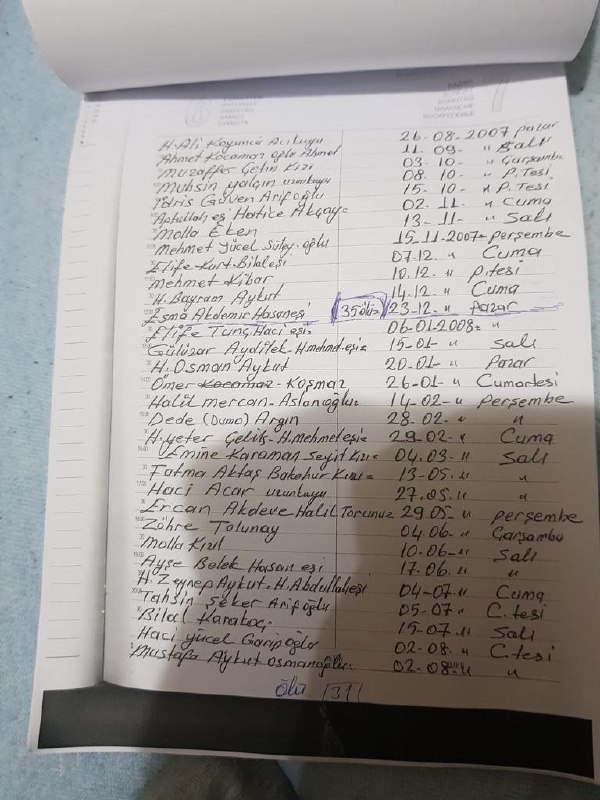 H. Ali Koyuncu Acıkuyu 26-08-2007 pazar
Ahmet Kocamaz oğlu Ahmet 11-09- " Salı
Muzaffer Çetin Kızı 03-10- " Çarşamba
Muhsin yalçın uzunkuyu 08.10- " P.Tesi
İdris Güven Arifoğlu 15-10- " P.Tesi
Abdullah eş Hatice Akçay= 02-11- " Cuma
Molla Eken 13-11- " Salı
Mehmet yücel Süley. oğlu 15-11-2007- perşembe
Elife Kurt Bilaleşi 07.12. " Cuma
Mehmet Kibar 10.12. " p.tesi
H. Bayram Aykut 14.12 " Cuma
Esma Akdemir Hasaneşi 35 ölü= 23-12. " pazar
Elife Tunç Haci eşi= 06-01-2008= "
Gülüzar Aydilek-H.mehmet.eşi= 15-01- " Salı
H. Osman Aykut 20-01- " Pazar
Ömer Kocamaz- Koşmaz 26-01- " Cumartesi
Halil mercan- Aslanoğlu= 14-02- " perşembe
Dede (Dumo) Argın 28-02- " "
H. yeter Çelik- H.mehmeteşi= 29-02- " Cuma
Emine Karaman Seyit Kızı= 04.03- " Salı
Fatma Aktaş Bekehür Kızı= 13-05. " "
Haci Acar uzunkuyu 27.05. " "
Ercan Akdeve Halil Torunu= 29.05- " perşembe
Zöhre Tolunay 04.06. " Çarşamba
Molla Kızıl 10-06- " Salı
Ayşe Belek Hasan eşi 17-06. " "
H. Zeynep Aykut. H. Abdullaheşi 04-07- " Cuma
Tahsin Şeker Arifoğlu 05-07- " C.tesi
Bilal Karakoç. 15-07. " Salı
Haci yücel Garipoğlu 02-08. " C.tesi
Mustafa Aykut osmanoğlu= 02-08- " "
ölü 31